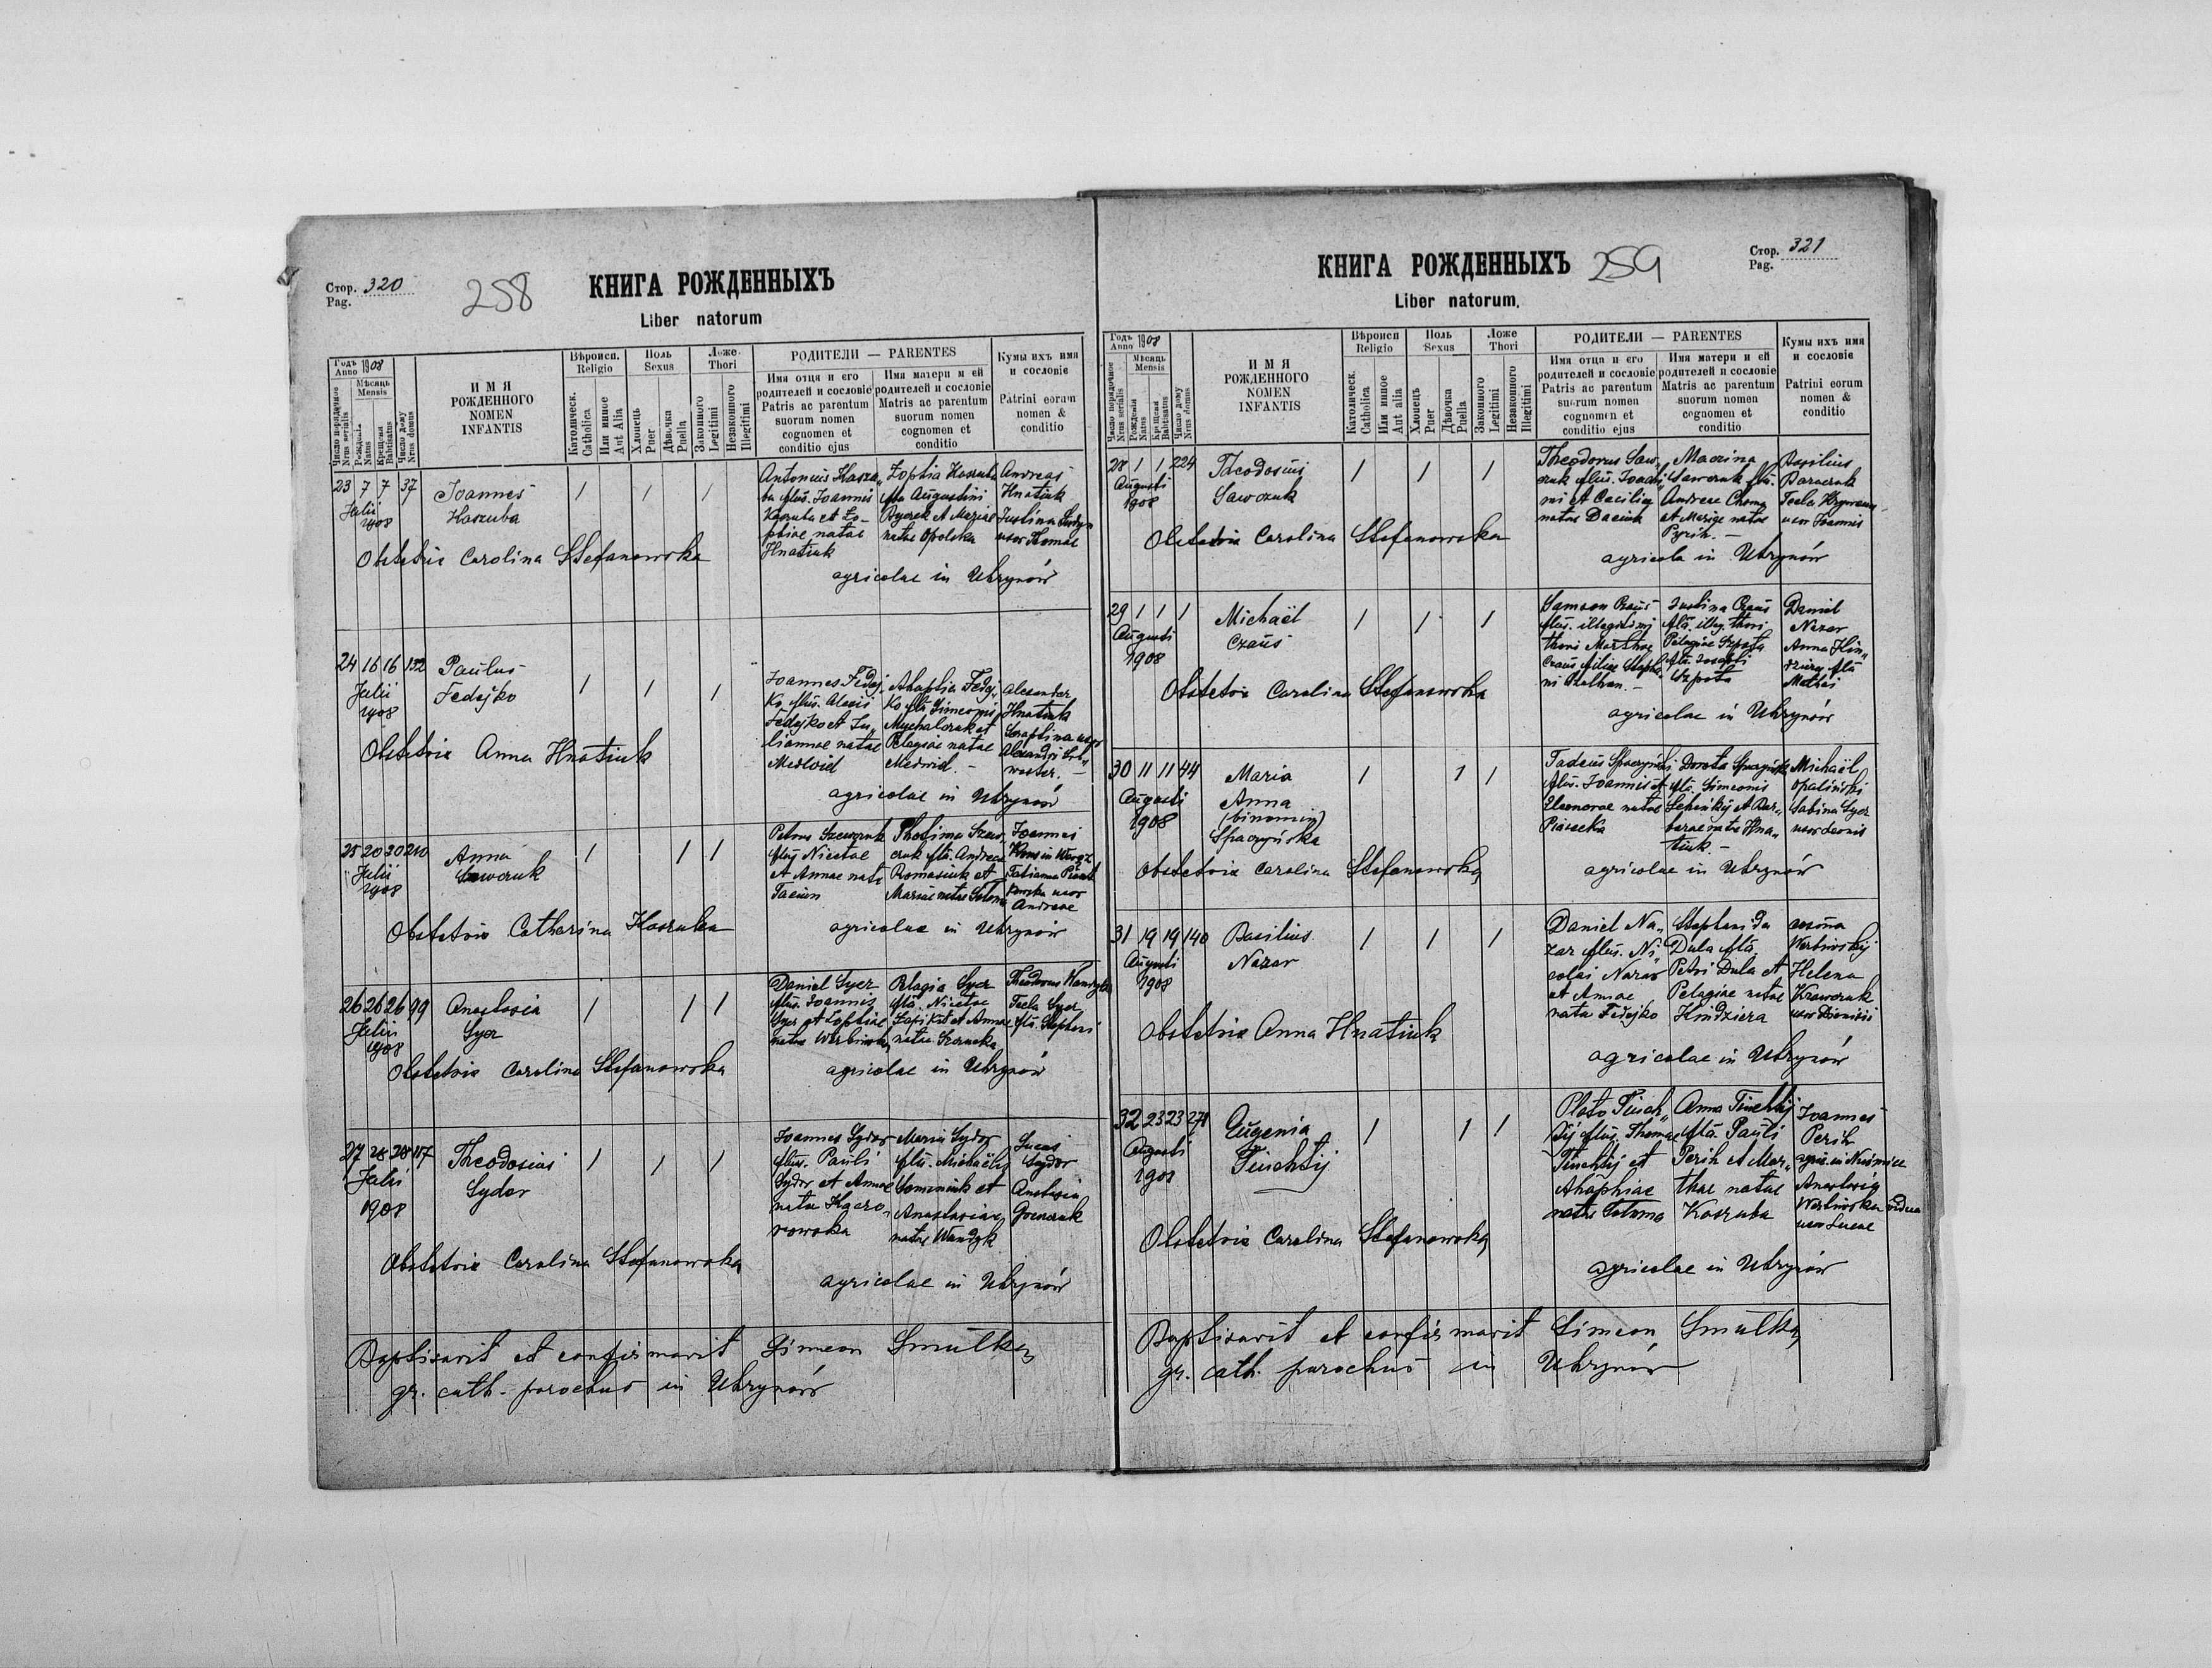 Стор. 320
Pag.
258
КНИГА РОЖДЕННЫХЪ
Liber natorum
Годъ 1908
Anno
Мѣсяць
Mensis
Число порядочное
Nrus serialis
Рожденія
Natus
Крещенія
Babtisatus
Число дому
Nrus domus
ИМЯ
РОЖДЕННОГО
NOMEN
INFANTIS
Вѣроисп.
Religio
Католическ.
Catholica
Или инное
Aut Alia
Поль
Sexus
Хлопець
Puer
Дѣвочка
Puella
Ложе
Thori
Законного
Legitimi
Незаконного
Illegitimi
РОДИТЕЛИ — PARENTES
Имя отца и его
родителей и сословіе
Patris ac parentum
suorum nomen
cognomen et
conditio ejus
Имя матери и ей
родителей и сословіе
Matris ac parentum
suorum nomen
cognomen et
conditio
Кумы ихъ имя
и сословіе
Patrini eorum
nomen &
conditio
23 7 7 37
Julii
1908
Joannes
Kaszuba
1 1 1
Antonius Kaszu„
ba flius. Joannis
Kaszuba et Zo-
phiae natae
Hnatiuk
Zophia Kaszuba
flia Augustini
et Mariae
natae Opolska
Andreas
Hnatiuk
Justina
uxor Thomae
Obstetrix Carolina Stefanowska
agricolae in Uhrynów
24 16 16 132
Julii
1908
Paulus
Fedejko
1 1 1
Joannes Fedej„
ko flius. Alexii
Fedejko et Ju„
liannae natae
Medwid
Ahaphia Fedej„
ko flia Simeonis
Mychalczuk et
Pelagiae natae
Medwid. —
Alexander
Hnatiuk
Seraphina uxor
Alexandri
Obstetrix Anna Hnatiuk
agricolae in Uhrynów
25 20 20 210
Julii
1908
Anna
Szewczuk
1 1 1
Petrus Szewczuk
flius Nicetae
et Annae natae
Photima Szew„
czuk flia. Andreae
Romasiuk et
Mariae natae
Joannes
Tatianna
uxor
Andreae
Obstetrix Catharina Kaszuba
agricolae in Uhrynów
26 26 26 99
Julii
1908
Anastasia
Sycz
1 1 1
Daniel Sycz
flius. Joannis
Sycz et Zophiae
natae Werbiwska
Pelagia Sycz
flia. Nicetae
et Annae
natae
Theodorus
Tecla Sycz
flia. Stephani
Obstetrix Carolina Stefanowska
agricolae in Uhrynów
27 28 28 117
Julii
1908
Theodosius
Sydor
1 1 1
Joannes Sydor
flius. Pauli
Sydor et Annae
natae Kaczo„
rowska
Maria Sydor
flia. Michaëlis
Semeniuk et
Anastasiae
natae Wandyk
Lucas
Sydor
Anastasia
Obstetrix Carolina Stefanowska
agricolae in Uhrynów
Baptisavit et confirmavit Simeon Smulka
gr. cath. parochus in Uhrynów
КНИГА РОЖДЕННЫХЪ
259
Стор. 321
Pag.
Liber natorum.
Годъ 1908
Anno
Мѣсяць
Mensis
Число порядочное
Nrus serialis
Рожденія
Natus
Крещенія
Babtisatus
Число дому
Nrus domus
ИМЯ
РОЖДЕННОГО
NOMEN
INFANTIS
Вѣроисп
Religio
Католическ.
Catholica
Или инное
Aut alia
Поль
Sexus
Хлопець
Puer
Дѣвочка
Puella
Ложе
Thori
Законного
Legitimi
Незаконного
Illegitimi
РОДИТЕЛИ — PARENTES
Имя отца и его
родителей и сословіе
Patris ac parentum
suorum nomen
cognomen et
conditio ejus
Имя матери и ей
родителей и сословіе
Matris ac parentum
suorum nomen
cognomen et
conditio
Кумы ихъ имя
и сословіе
Patrini eorum
nomen &
conditio
28 1 1 224
Augusti
1908
Theodosius
Sawczuk
1 1 1
Theodorus Saw„
czuk flius. Joachi„
mi et Caeciliae
natae Daciuk
Macrina
Sawczuk flia.
Andreae Choma
et Mariae natae
Pyrih. —
Basilius
Baraczuk
Tecla
uxor Joannis
Obstetrix Carolina Stefanowska
agricolae in Uhrynów
29 1 1 1
Augusti
1908
Michaël
Czaus
1 1 1
Samson Czaus
flius. illegitimi
thori Marthae
Czaus filiae Stepha„
ni
Justina Czaus
flia. illeg. thori
Pelagiae Szpota
flia. Josephi
Szpota
Daniel
Nazar
Anna Kin„
dziera flia
Mathei
Obstetrix Carolina Stefanowska
agricolae in Uhrynów
30 11 11 44
Augusti
1908
Maria
Anna
(binomin)
Spaczyńska
1 1 1
Tadeus Spaczyński
flius. Joannis et
Eleonorae natae
Piasecka
Dorota Spaczyńska
flia. Simeonis
et Bar„
barae natae Hna„
tiuk. —
Michaël
Opaliński
Sabina Sycz
uxor Leonis
Obstetrix Carolina Stefanowska
agricolae in Uhrynów
31 19 19 140
Augusti
1908
Basilius
Nazar
1 1 1
Daniel Na„
zar flius. Ni„
colai Nazar
et Annae
natae Fedejko
Stephanida
Dula flia
Petri Dula et
Pelagiae natae
Kindziera
Werbiwskij
Helena
Krawczuk
uxor Dionisii
Obstetrix Anna Hnatiuk
agricolae in Uhrynów
32 23 23 271
Augusti
1908
Eugenia
Tiuchtij
1 1 1
Plato Tiuch„
tij flius. Thomae
Tiuchtij et
Ahaphiae
natae
Anna Tiuchtij
flia. Pauli
Perih et Mar„
thae natae
Kaszuba
Joannes
Perih
agric. in
Anastasia
Werbiwska vidua
uxor Lucae
Obstetrix Carolina Stefanowska
agricolae in Uhrynów
Baptisavit et confirmavit Simeon Smulka
gr. cath. parochus in Uhrynów